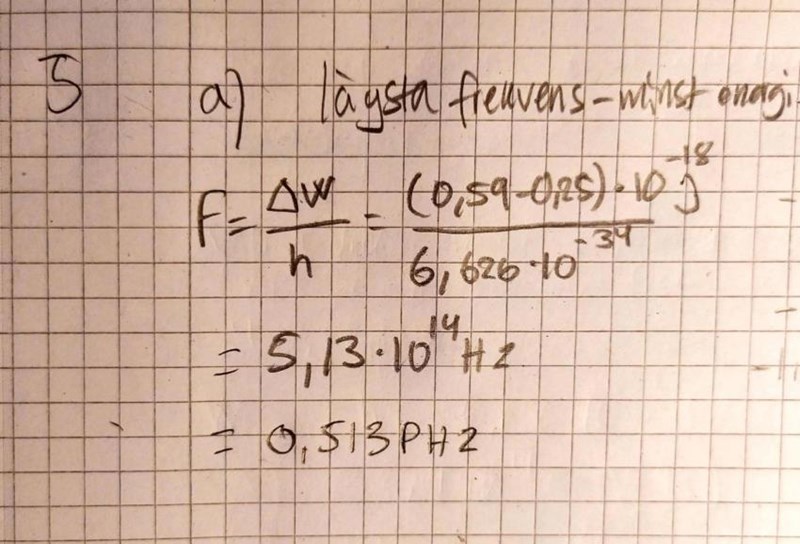 5 a) lägsta frekvens-minst energi
F = ΔW/h = (0,59-0,25)·10^-18 J / 6,626·10^-34
= 5,13·10^14 Hz
= 0,513 PHz